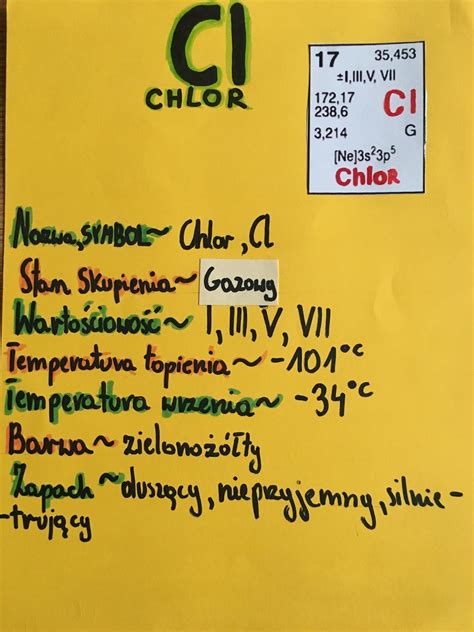 Cl
CHLOR
17 35,453
±I,III,V, VII
172,17
238,6 Cl
3,214 G
[Ne]3s²3p⁵
Chlor
Nazwa, SYMBOL ~ Chlor, Cl
Stan Skupienia ~ Gazowy
Wartościowość ~ I, III, V, VII
Temperatura topienia ~ -101°C
Temperatura wrzenia ~ -34°C
Barwa ~ zielonożółty
Zapach ~ duszący, nieprzyjemny, silnie-
-trujący